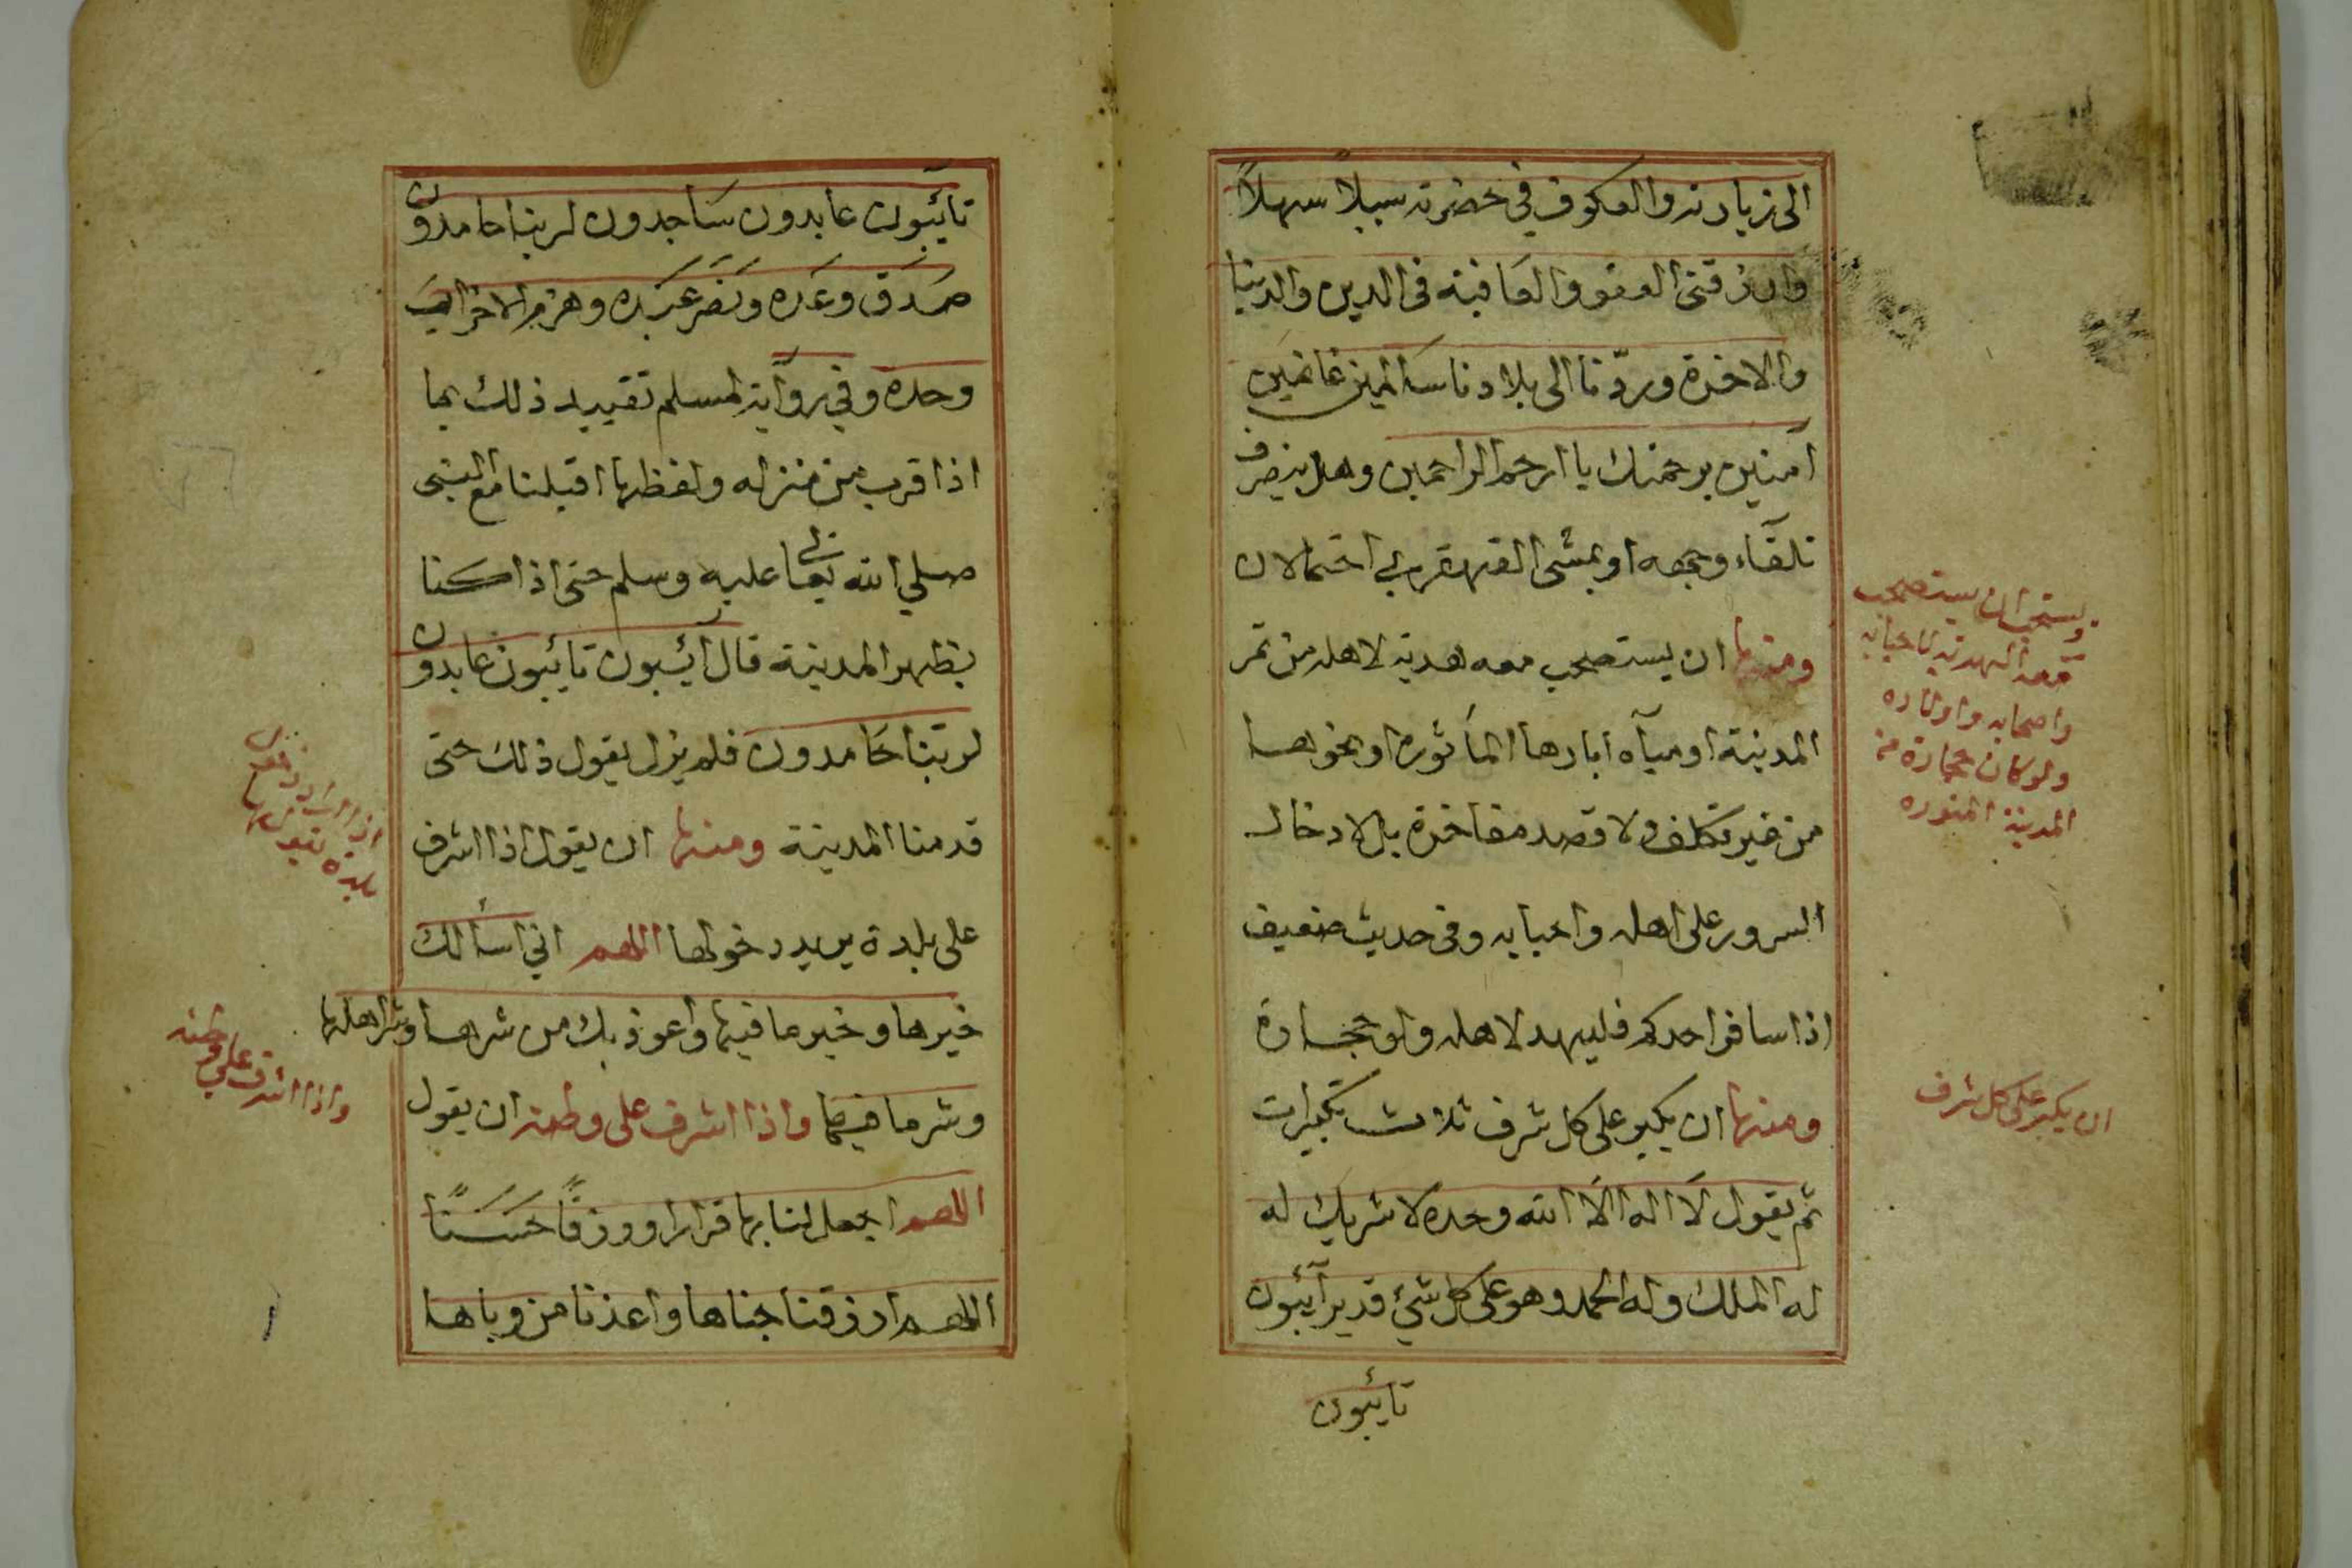 الى زيارته والعكوف في حضرته سبيلاً سهلاً
وارزقنى العفو والعافية فى الدين والدنيا
والاخرة وردّنا الى بلادنا سالمين غانمين
آمنين برحمتك يا ارحم الراحمين وهل ينصرف
تلقآء وجهه او يمشى القهقرى احتمالان
ومنها ان يستصحب معه هدية لاهله من تمر
المدينة او مياه ابارها المأثورة او نحوها
من غير تكلف ولا قصد مفاخرة بل لادخال
السرور على اهله واحبابه وفى حديث ضعيف
اذا سافر احدكم فليهد لاهله ولو حجارة
ومنها ان يكبر على كل شرف ثلاث تكبيرات
ثم يقول لا اله الا الله وحده لا شريك له
له الملك وله الحمد وهو على كل شئ قدير آئبون
تائبون
ويستحب ان يستصحب
معه الهدية لاحبابه
واصحابه واولاده
ولو كان حجارة من
المدينة المنوره
ان يكبر على كل شرف
تائبون عابدون ساجدون لربنا حامدون
صَدَق وعَده ونَصَر عَبَده وهزم الاحزاب
وحده وفي رواية لمسلم تقييد ذلك بما
اذا قرب من منزله ولفظها اقبلنا مع النبى
صلي الله تعالى عليه وسلم حتى اذا كنا
بظهر المدينة قال آئبون تائبون عابدون
لربنا حَامدون فلم يزل يقول ذلك حتى
قدمنا المدينة ومنها ان يقول اذا اشرف
على بلدة يريد دخولها اللهم اني اسألك
خيرها وخير ما فيها واعوذ بك من شرها وشر اهلها
وشر ما فيها واذا اشرف على وطنه ان يقول
اللهم اجعل لنا بها قرارا ورزقًا حَسَنًا
اللهم ارزقنا جناها واعذنا من وباها
اذا اراد دخول
بلدة يقول
واذا اشرف على وطنه